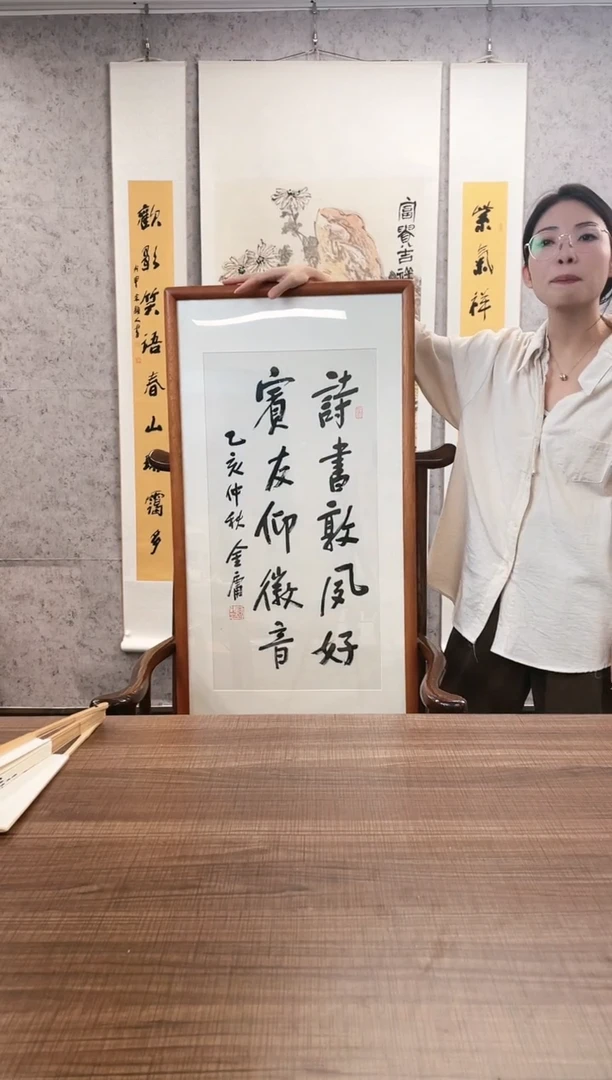 詩書敦夙好
賓友仰徽音
乙亥仲秋 金庸
紫氣祥
富貴吉祥
歡 笑語春山 靄多